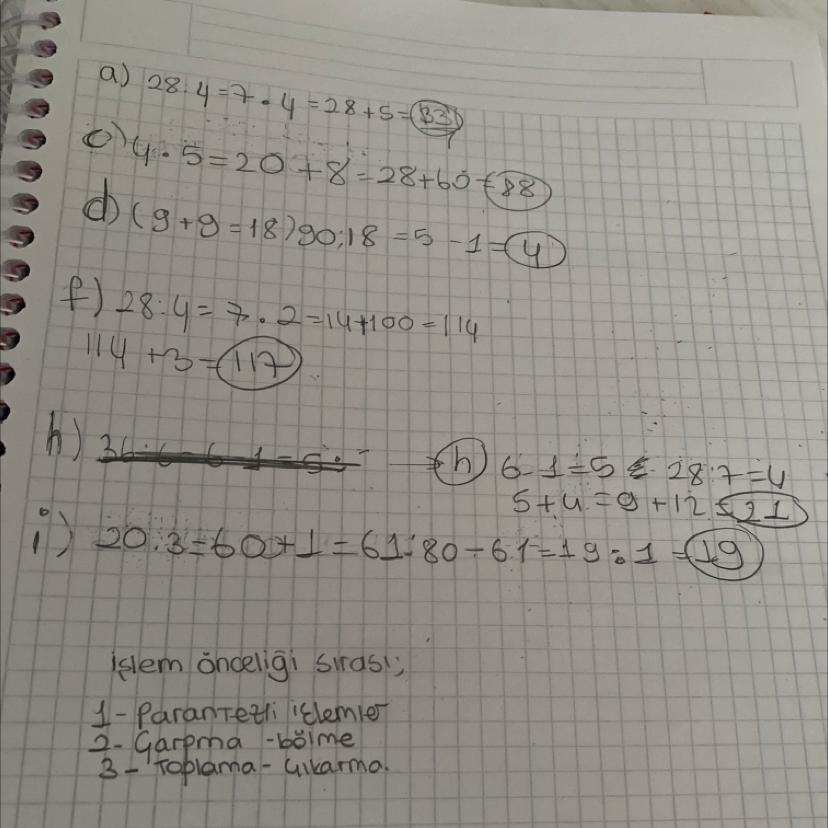 a) 28:4=7.4=28+5=33
c) 4.5=20+8=28+60=88
d) (9+9=18) 90:18=5-1=4
f) 28:4=7.2=14+100=114
114+3=117
h) → h) 6-1=5 28:7=4
5+4=9+12=21
i) 20.3=60+1=61 80-61=19.1=19
işlem önceliği sırası;
1-Parantezli işlemler
2-Çarpma-bölme
3-Toplama-Çıkarma.